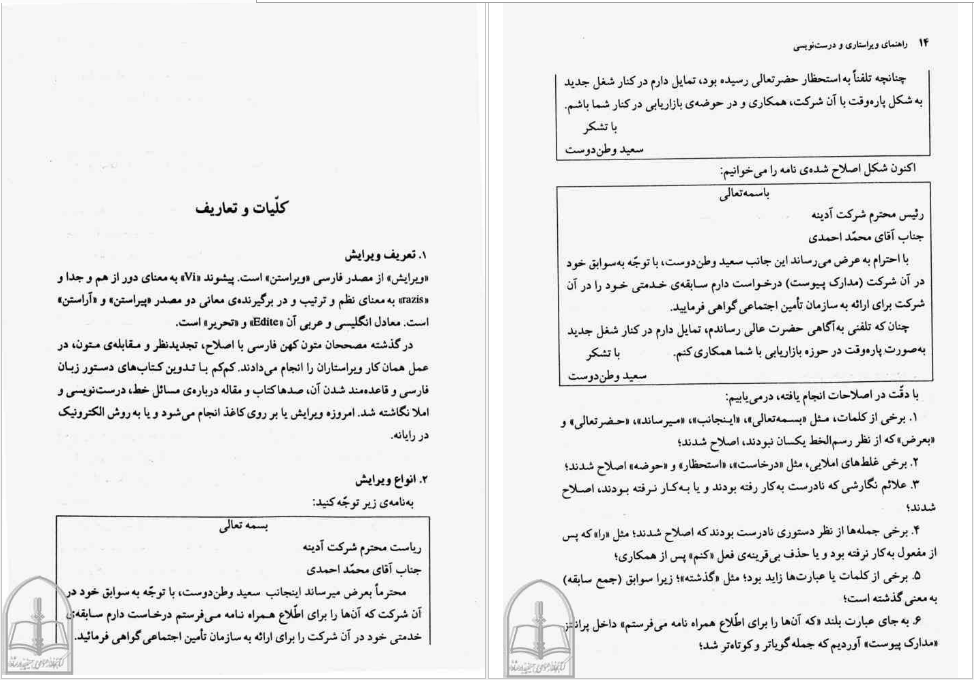 کلّیات و تعاریف
۱. تعریف ویرایش
«ویرایش» از مصدر فارسی «ویراستن» است. پیشوند «Vi» به معنای دور از هم و جدا و
«razis» به معنای نظم و ترتیب و در برگیرنده‌ی معانی دو مصدر «پیراستن» و «آراستن»
است. معادل انگلیسی و عربی آن «Edite» و «تحریر» است.
در گذشته مصححان متون کهن فارسی با اصلاح، تجدیدنظر و مقابله‌ی متون، در
عمل همان کار ویراستاران را انجام می‌دادند. کم‌کم با تدوین کتاب‌های دستور زبان
فارسی و قاعده‌مند شدن آن، صدها کتاب و مقاله درباره‌ی مسائل خط، درست‌نویسی و
املا نگاشته شد. امروزه ویرایش یا بر روی کاغذ انجام می‌شود و یا به روش الکترونیک
در رایانه.
۲. انواع ویرایش
به‌نامه‌ی زیر توجّه کنید:
بسمه تعالی
ریاست محترم شرکت آدینه
جناب آقای محمّد احمدی
محترماً بعرض میرساند اینجانب سعید وطن‌دوست، با توجّه به سوابق خود در
آن شرکت که آن‌ها را برای اطّلاع همراه نامه می‌فرستم درخاست دارم سابقه‌ی
خدمتی خود در آن شرکت را برای ارائه به سازمان تأمین اجتماعی گواهی فرمائید.
۱۴ راهنمای ویراستاری و درست‌نویسی
چنانچه تلفناً به استحظار حضرتعالی رسیده بود، تمایل دارم در کنار شغل جدید
به شکل پاره‌وقت با آن شرکت، همکاری و در حوضه‌ی بازاریابی در کنار شما باشم.
با تشکر
سعید وطن‌دوست
اکنون شکل اصلاح شده‌ی نامه را می‌خوانیم:
باسمه‌تعالی
رئیس محترم شرکت آدینه
جناب آقای محمّد احمدی
با احترام به عرض می‌رساند این جانب سعید وطن‌دوست، با توجّه به‌سوابق خود
در آن شرکت (مدارک پیوست) درخواست دارم سابقه‌ی خدمتی خود را در آن
شرکت برای ارائه به سازمان تأمین اجتماعی گواهی فرمایید.
چنان که تلفنی به‌آگاهی حضرت عالی رساندم، تمایل دارم در کنار شغل جدید
به‌صورت پاره‌وقت در حوزه بازاریابی با شما همکاری کنم. با تشکر
سعید وطن‌دوست
با دقّت در اصلاحات انجام یافته، درمی‌یابیم:
۱. برخی از کلمات، مثل «بسمه‌تعالی»، «اینجانب»، «میرساند»، «حضرتعالی» و
«بعرض» که از نظر رسم‌الخط یکسان نبودند، اصلاح شدند؛
۲. برخی غلط‌های املایی، مثل «درخاست»، «استحظار» و «حوضه» اصلاح شدند؛
۳. علائم نگارشی که نادرست به‌کار رفته بودند و یا به‌کار نرفته بودند، اصلاح
شدند؛
۴. برخی جمله‌ها از نظر دستوری نادرست بودند که اصلاح شدند؛ مثل «را» که پس
از مفعول به‌کار نرفته بود و یا حذف بی‌قرینه‌ی فعل «کنم» پس از همکاری؛
۵. برخی از کلمات یا عبارت‌ها زاید بود؛ مثل «گذشته»؛ زیرا سوابق (جمع سابقه)
به معنی گذشته است؛
۶. به جای عبارت بلند «که آن‌ها را برای اطّلاع همراه نامه می‌فرستم» داخل پرانتز
«مدارک پیوست» آوردیم که جمله گویاتر و کوتاه‌تر شد؛